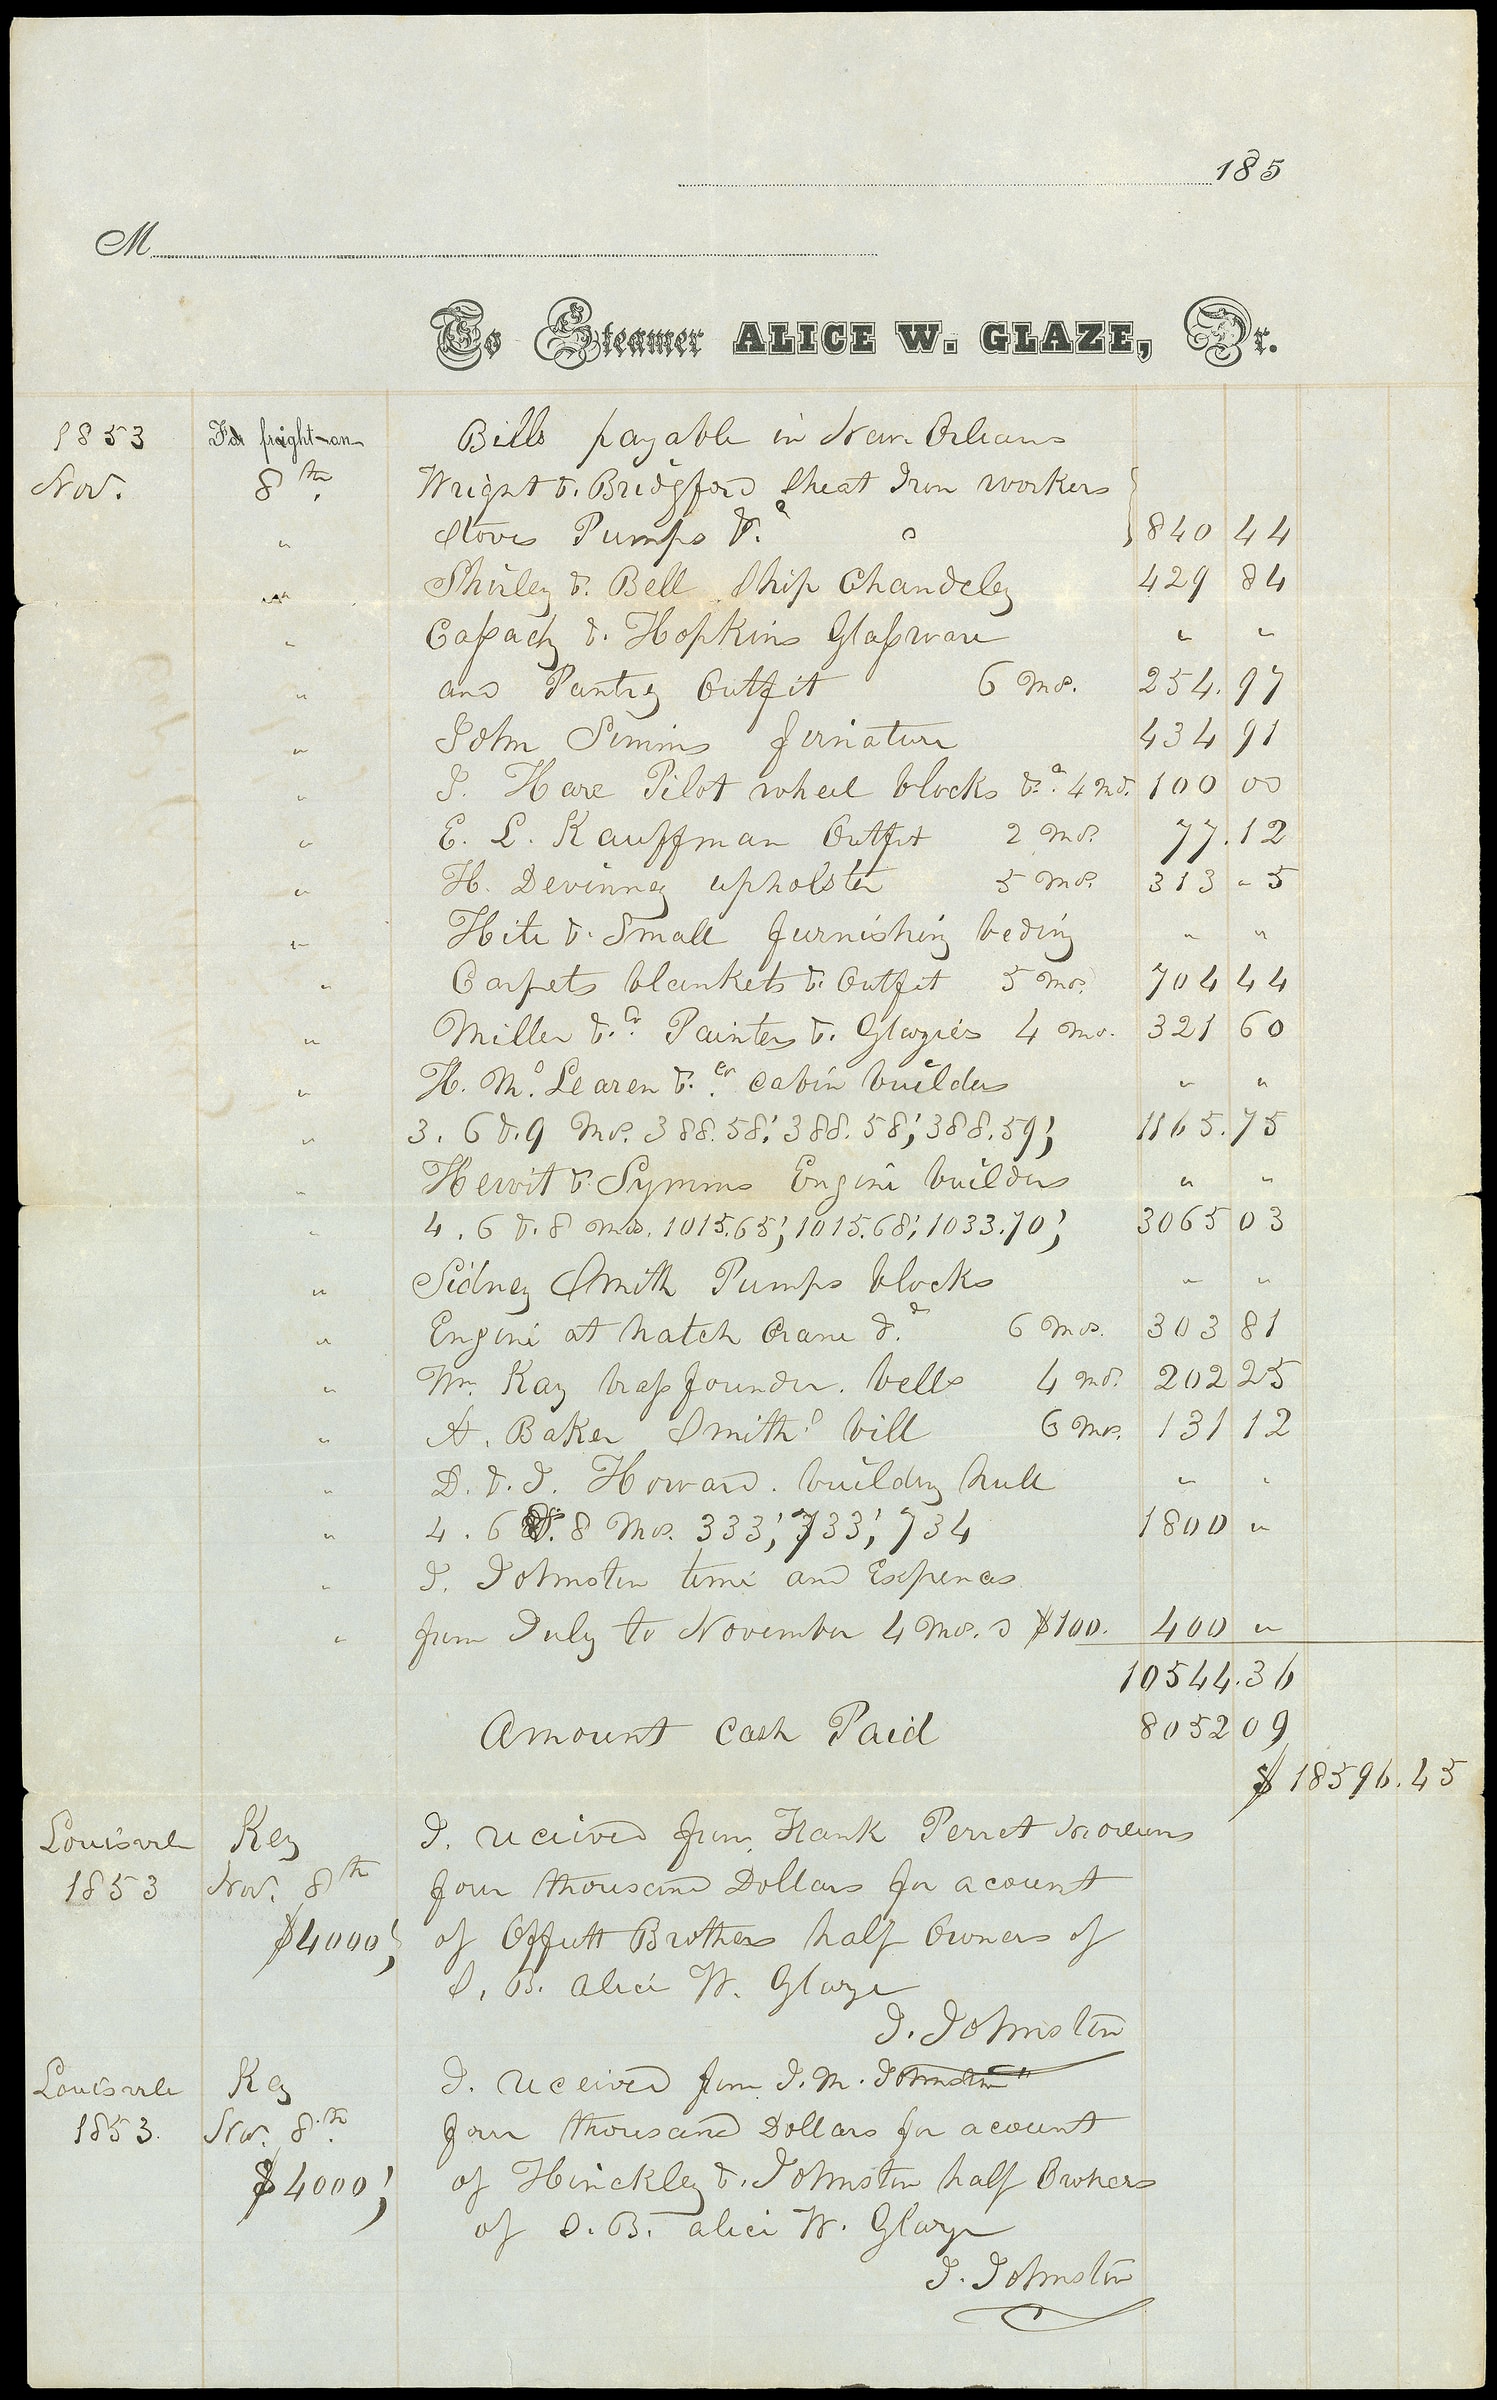 185
M
To Steamer ALICE W. GLAZE, Dr.
1853 For freight on Bills payable in New Orleans
Nov. 8th Wright &. Bridgford Sheat Iron workers
" Stoves Pumps &.a 840 44
" Shirley &. Bell Ship Chandeley 429 84
" Casseday &. Hopkins Glassware " "
" and Pantry Outfit 6 Mo. 254.97
" John Simms firnature 434 91
" J. Hare Pilot wheel blocks &.a 4 Mo. 100 00
" E. L. Kauffman Outfit 2 Mo. 77.12
" H. Devinney upholster 5 Mo. 313 " 5
" Hite &. Small furnishing beding " "
" Carpets blankets &. Outfit 5 Mo. 704 44
" Miller &.Co. Painters &. Glazies 4 mo. 321 60
" H. Mc.Learen &.Co. cabin builders " "
" 3. 6 &. 9 Mo. 388.58; 388.58; 388.59; 1165.75
" Hewit &. Symms Engine builders " "
" 4. 6 &. 8 mo. 1015.65; 1015.68; 1033.70; 3065 03
" Sidney Smith Pumps blocks " "
" Engine at hatch Crane &.a 6 Mos. 303 81
" Wm. Kay brass founder. bells 4 mo. 202 25
" A. Baker Smiths bill 6 Mo. 131 12
" D. &. J. Howard. building hull " "
" 4. 6 &. 8 Mos. 333; 733; 734 1800 "
" J. Johnston time and Expences
" from July to November 4 Mo. $100. 400 "
10544.36
Amount Cash Paid 8052 09
$ 18596.45
Louisvile Key I. received from Frank Perret
1853 Nov. 8th four thousand Dollars for acount
$4000; of Offutt Brothers half Owners of
S. B. Alice W. Glaze
J. Johnston
Louisvile Key I. received from J. M. Johnston
1853. Nov. 8th four thousand Dollars for acount
$4000; of Hinckley &. Johnston half Owners
of S. B. Alice W. Glaze
J. Johnston